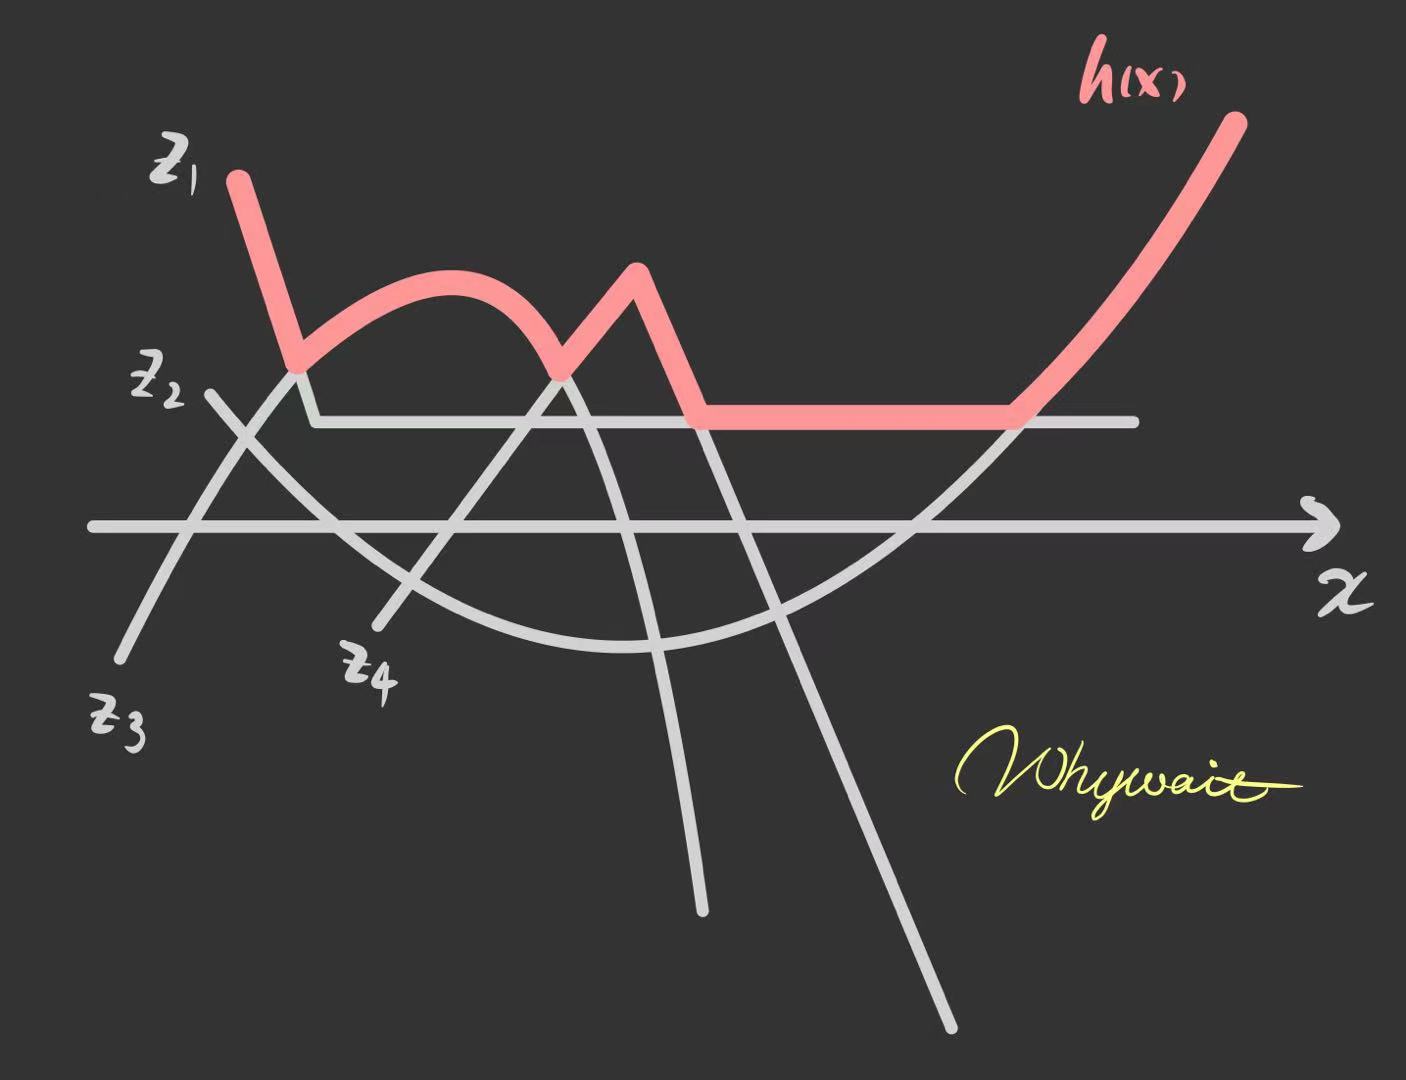 h(x)
z₁
z₂
x
z₄
z₃
Whywait